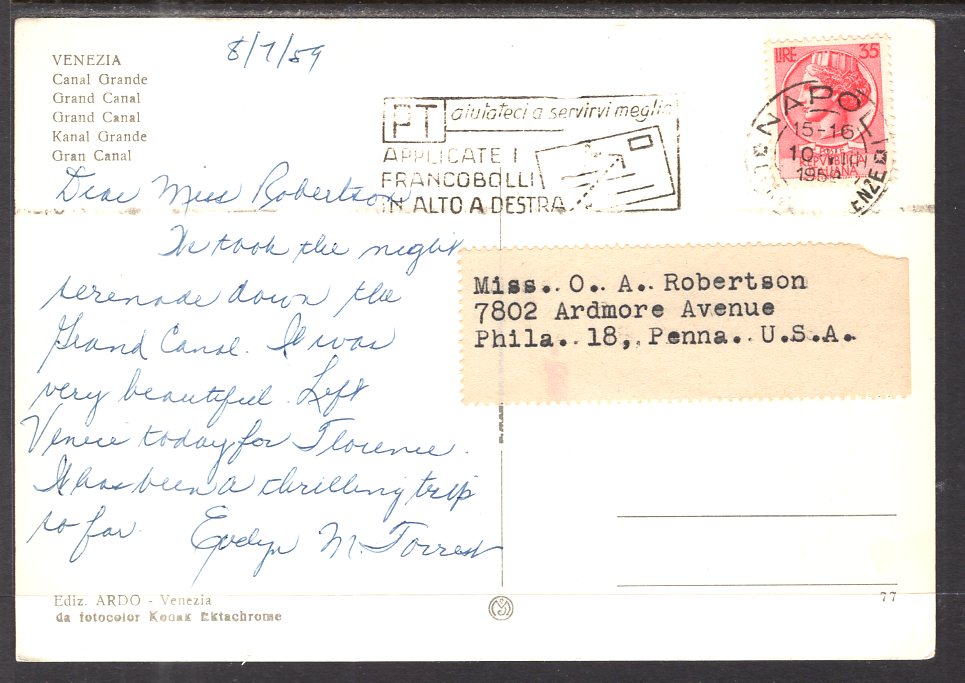 VENEZIA
Canal Grande
Grand Canal
Grand Canal
Kanal Grande
Gran Canal
8/7/59
PT aiutateci a servirvi meglio
APPLICATE I
FRANCOBOLLI
IN ALTO A DESTRA
LIRE 35
NAPOLI
15-16
10
195
FERENZE
REPVBBLICA
ITALIANA
Dear Miss Robertson
We took the night
serenade down the
Grand Canal. It was
very beautiful. Left
Venice today for Florence.
It has been a thrilling trip
so far. Evelyn M. Forrest
Miss. O. A. Robertson
7802 Ardmore Avenue
Phila. 18, Penna. U.S.A.
Ediz. ARDO - Venezia
da fotocolor Kodak Ektachrome
77